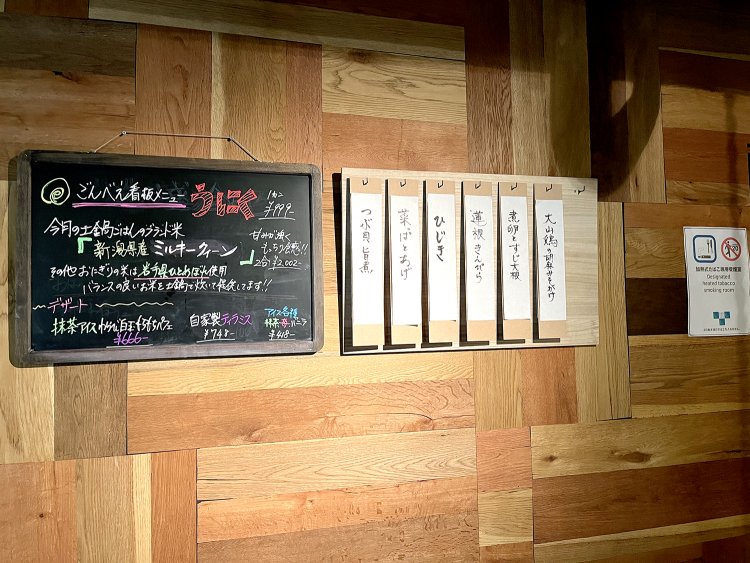 ごんべえ看板メニュー うにく 1カン ¥999-
今月の土鍋ごはんのブランド米
「新潟県産 ミルキークィーン」
甘みが強く
もっちり食感!!
2合¥2,002-
その他おにぎりの米は、岩手県ひとめぼれ使用
バランスの良いお米を土鍋で炊いて提供してます!!
デザート
抹茶アイス
パフェ
¥666-
自家製ティラミス
¥748-
アイス各種
抹茶 バニラ
¥418-
大山鶏の胡麻みそがけ
煮卵とすじ大根
蓮根きんぴら
ひじき
菜ばとあげ
つぶ貝旨煮
加熱式たばこ専用喫煙室
Designated
heated tobacco
smoking room
20